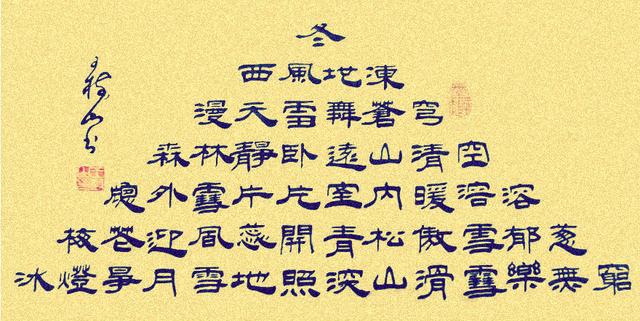 冬
西風地凍
漫天雪舞蒼穹
森林靜卧遠山清空
牕外雪片片室內暖溶溶
花迎風蕊開青松傲雪郁葱
冰燈爭月雪地照深山滑雪樂無窮
山书